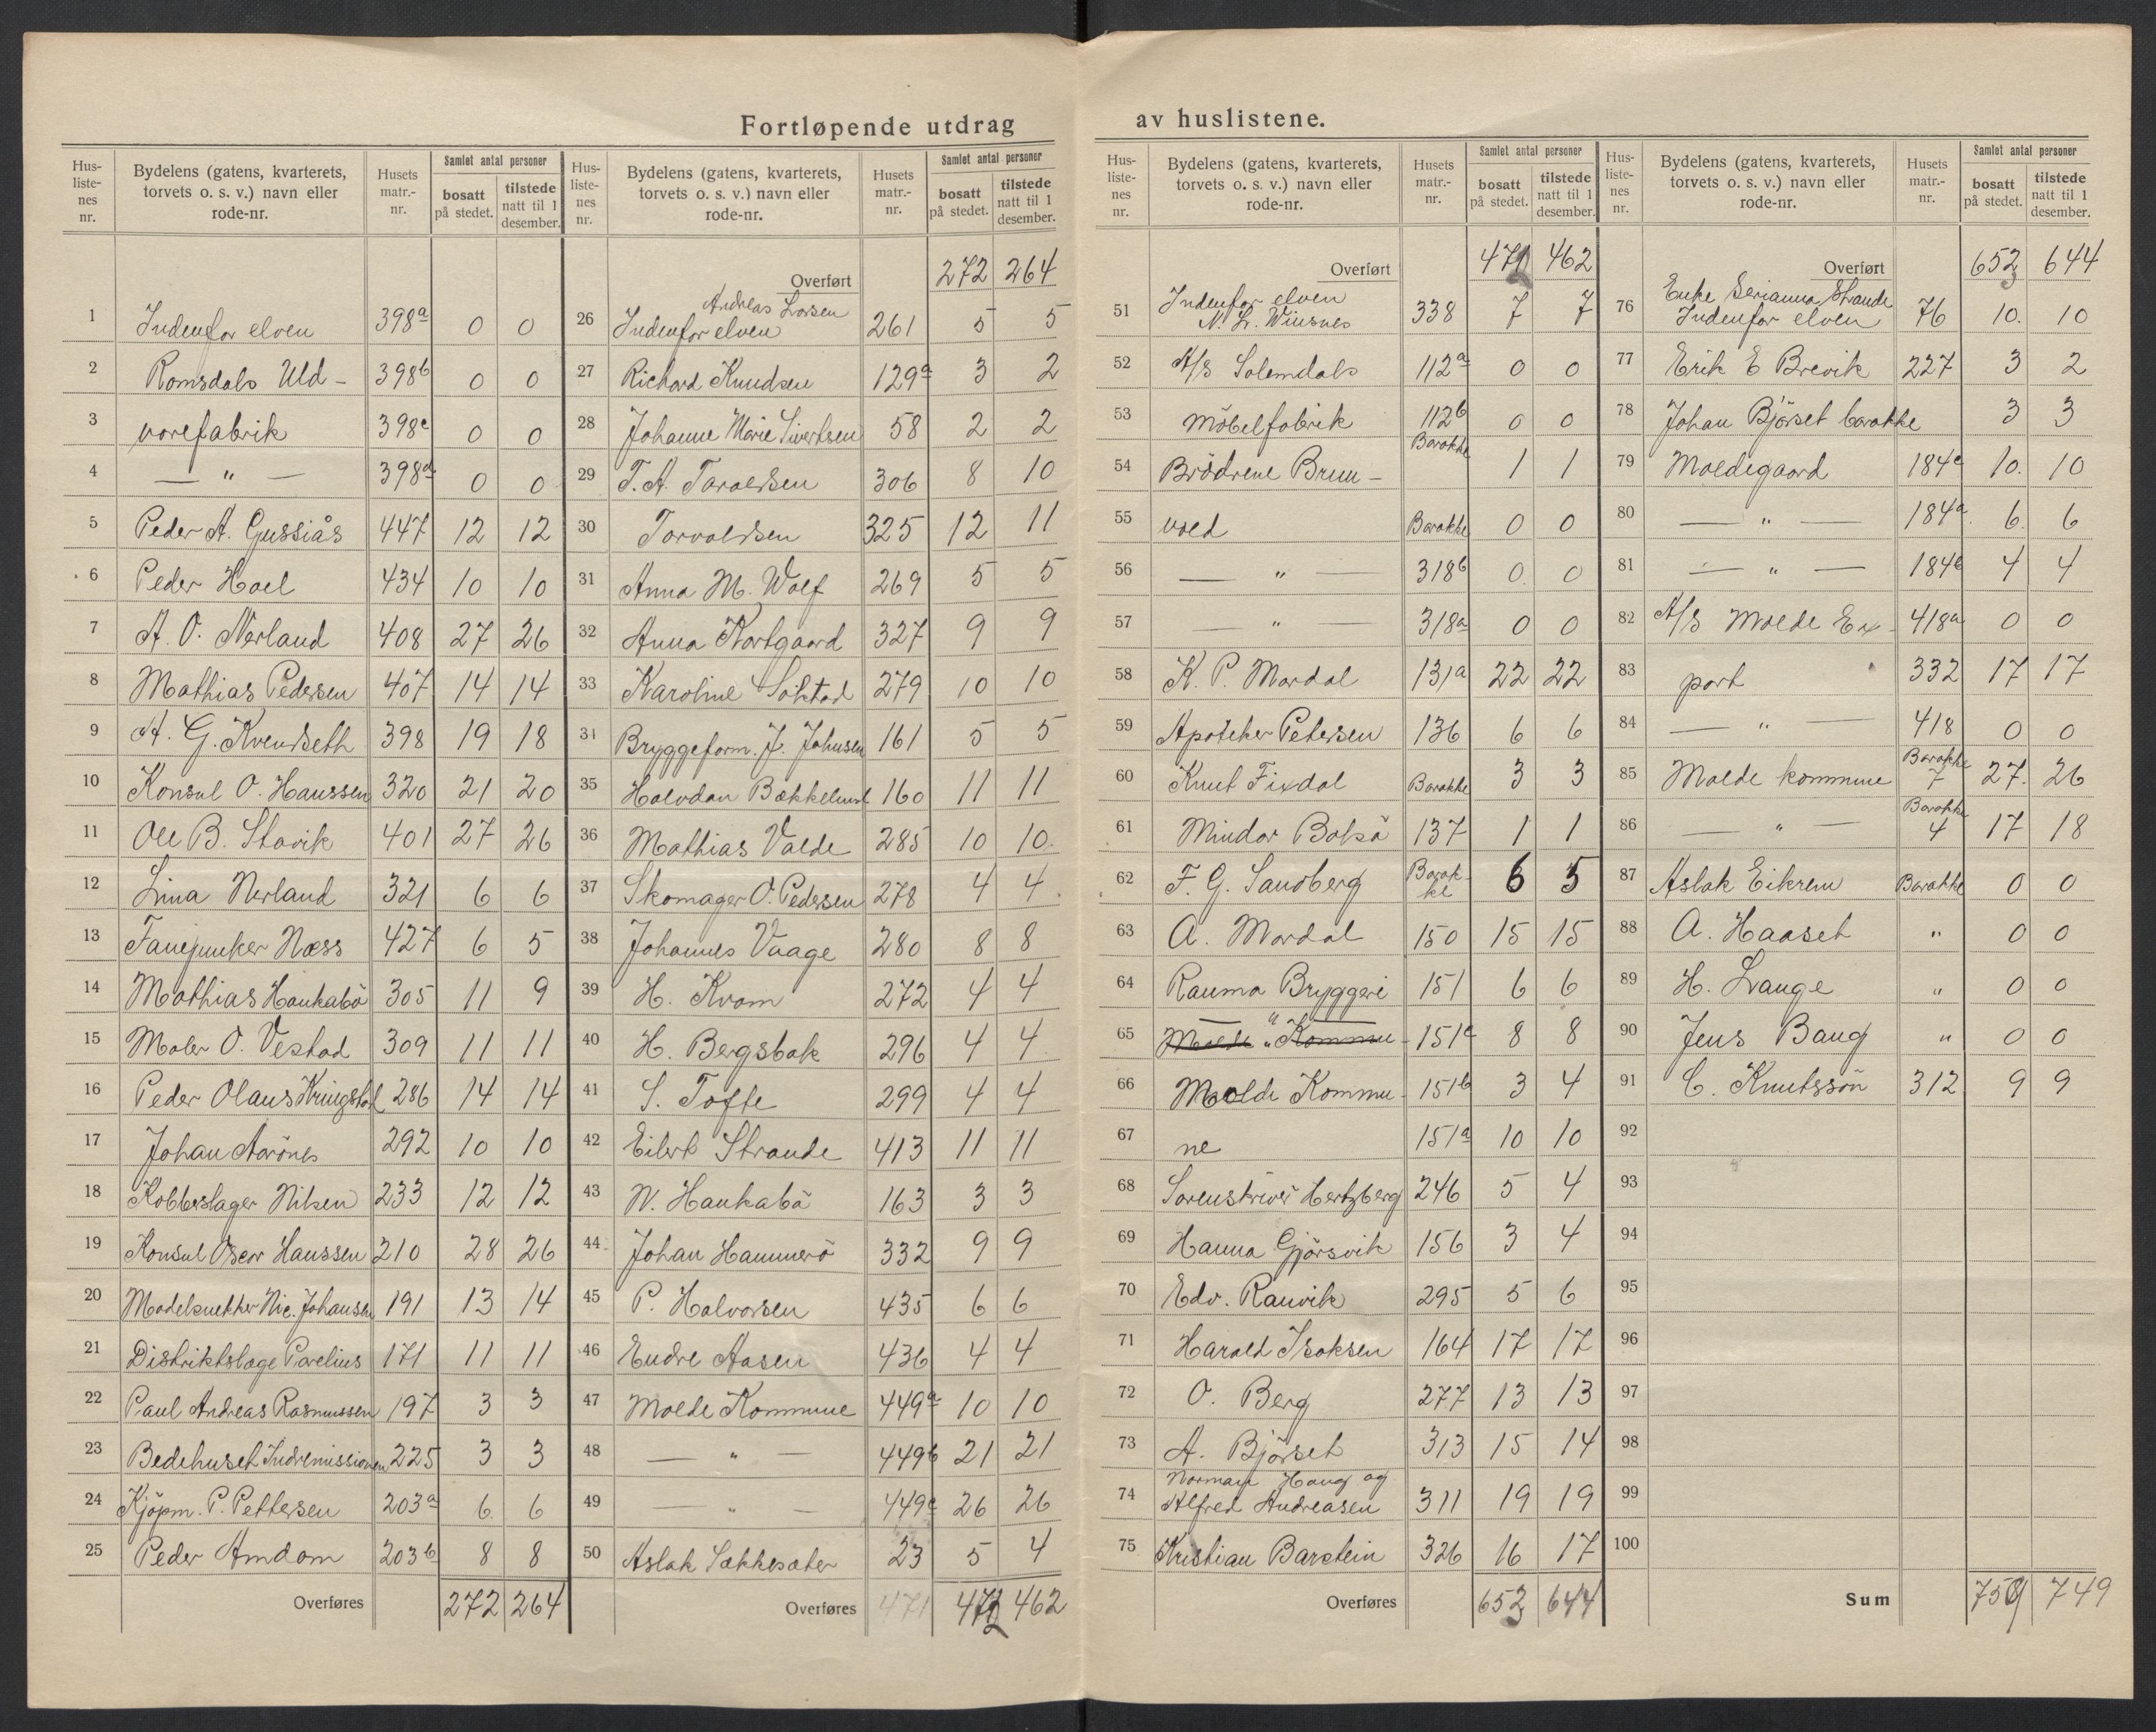 Fortløpende utdrag av huslistene.
Hus-liste-nes nr. | Bydelens (gatens, kvarterets, torvets o. s. v.) navn eller rode-nr. | Husets matr.-nr. | Samlet antal personer bosatt på stedet. | tilstede natt til 1 desember.
1 Indenfor elven 398a 0 0
2 Romsdals Uld- 398b 0 0
3 varefabrik 398c 0 0
4 — " — 398d 0 0
5 Peder A. Gussiås 447 12 12
6 Peder Hoel 434 10 10
7 A. O. Nerland 408 27 26
8 Mathias Pedersen 407 14 14
9 A. G. Kvendseth 398 19 18
10 Konsul O. Hanssen 320 21 20
11 Ole B. Stavik 401 27 26
12 Lina Nerland 321 6 6
13 Fanejunker Næss 427 6 5
14 Mathias Haukabö 305 11 9
15 Maler O. Vestad 309 11 11
16 Peder Olaus Kringstad 286 14 14
17 Johan Aarönes 292 10 10
18 Kobberslager Nilsen 233 12 12
19 Konsul Oscar Hanssen 210 28 26
20 Modelsnekker Nic. Johansen 191 13 14
21 Distriktslæge Parelius 171 11 11
22 Paul Andreas Rasmussen 197 3 3
23 Bedehuset Indremissionen 225 3 3
24 Kjöpm. P. Pettersen 203a 6 6
25 Peder Amdam 203b 8 8
Overføres 272 264
Hus-liste-nes nr. | Bydelens (gatens, kvarterets, torvets o. s. v.) navn eller rode-nr. | Husets matr.-nr. | Samlet antal personer bosatt på stedet. | tilstede natt til 1 desember.
Overført 272 264
26 Andreas Larsen Indenfor elven 261 5 5
27 Richard Knudsen 129a 3 2
28 Johanne Marie Sivertsen 58 2 2
29 T. A. Torvaldsen 306 8 10
30 Torvaldsen 325 12 11
31 Anna M. Wolf 269 5 5
32 Anna Kortgaard 327 9 9
33 Karoline Solstad 279 10 10
34 Bryggeform. J. Johnsen 161 5 5
35 Halvdan Bækkelund 160 11 11
36 Mathias Valde 285 10 10
37 Skomager O. Pedersen 278 4 4
38 Johannes Vaage 280 8 8
39 H. Kvam 272 4 4
40 H. Bergsbak 296 4 4
41 S. Tofte 299 4 4
42 Eilert Strande 413 11 11
43 N. Haukabö 163 3 3
44 Johan Hammerö 332 9 9
45 P. Halvorsen 435 6 6
46 Endre Aasen 436 4 4
47 Molde Kommune 449a 10 10
48 — " — 449b 21 21
49 — " — 449c 26 26
50 Aslak Sækkesæter 23 5 4
Overføres 471 472 462
Hus-liste-nes nr. | Bydelens (gatens, kvarterets, torvets o. s. v.) navn eller rode-nr. | Husets matr.-nr. | Samlet antal personer bosatt på stedet. | tilstede natt til 1 desember.
Overført 471 462
51 Indenfor elven N. L. Wiisnes 338 7 7
52 A/S Solemdals 112a 0 0
53 Möbelfabrik 112b 0 0
54 Brödrene Brun- Barakke 1 1
55 vold Barakke 0 0
56 — " — 318b 0 0
57 — " — 318a 0 0
58 K. P. Mardal 131a 22 22
59 Apoteker Petersen 136 6 6
60 Knut Fixdal Barakke 3 3
61 Mindor Bolsö 137 1 1
62 F. G. Sandberg Barakke 6 5
63 A. Mordal 150 15 15
64 Rauma Bryggeri 151 6 6
65 Molde Kommu- — " — 151c 8 8
66 Molde Kommu- 151b 3 4
67 ne 151a 10 10
68 Sorenskriver Hertzberg 246 5 4
69 Hanna Gjörsvik 156 3 4
70 Edv. Ranvik 295 5 6
71 Harald Isaksen 164 17 17
72 O. Berg 277 13 13
73 A. Björset 313 15 14
74 Normann Haug og Alfred Andreasen 311 19 19
75 Kristian Barstein 326 16 17
Overføres 652 644
Hus-liste-nes nr. | Bydelens (gatens, kvarterets, torvets o. s. v.) navn eller rode-nr. | Husets matr.-nr. | Samlet antal personer bosatt på stedet. | tilstede natt til 1 desember.
Overført 652 644
76 Enke Serianna Strande Indenfor elven 76 10. 10
77 Erik E Brevik 227 3 2
78 Johan Björset barakke 3 3
79 Moldegaard 184c 10. 10
80 — " — 184a 6. 6
81 — " — 184b 4 4
82 A/S Molde Ex- 418a 0 0
83 port 332 17 17
84 — " — 418 0 0
85 Molde kommune Barakke 7 27. 26
86 — " — Barakke 4 17 18
87 Aslak Eikrem Barakke 0 0
88 A. Haaset " 0 0
89 H. Lange " 0 0
90 Jens Baug " 0 0
91 C. Knutssön 312 9 9
92
93
94
95
96
97
98
99
100
Sum 758 749